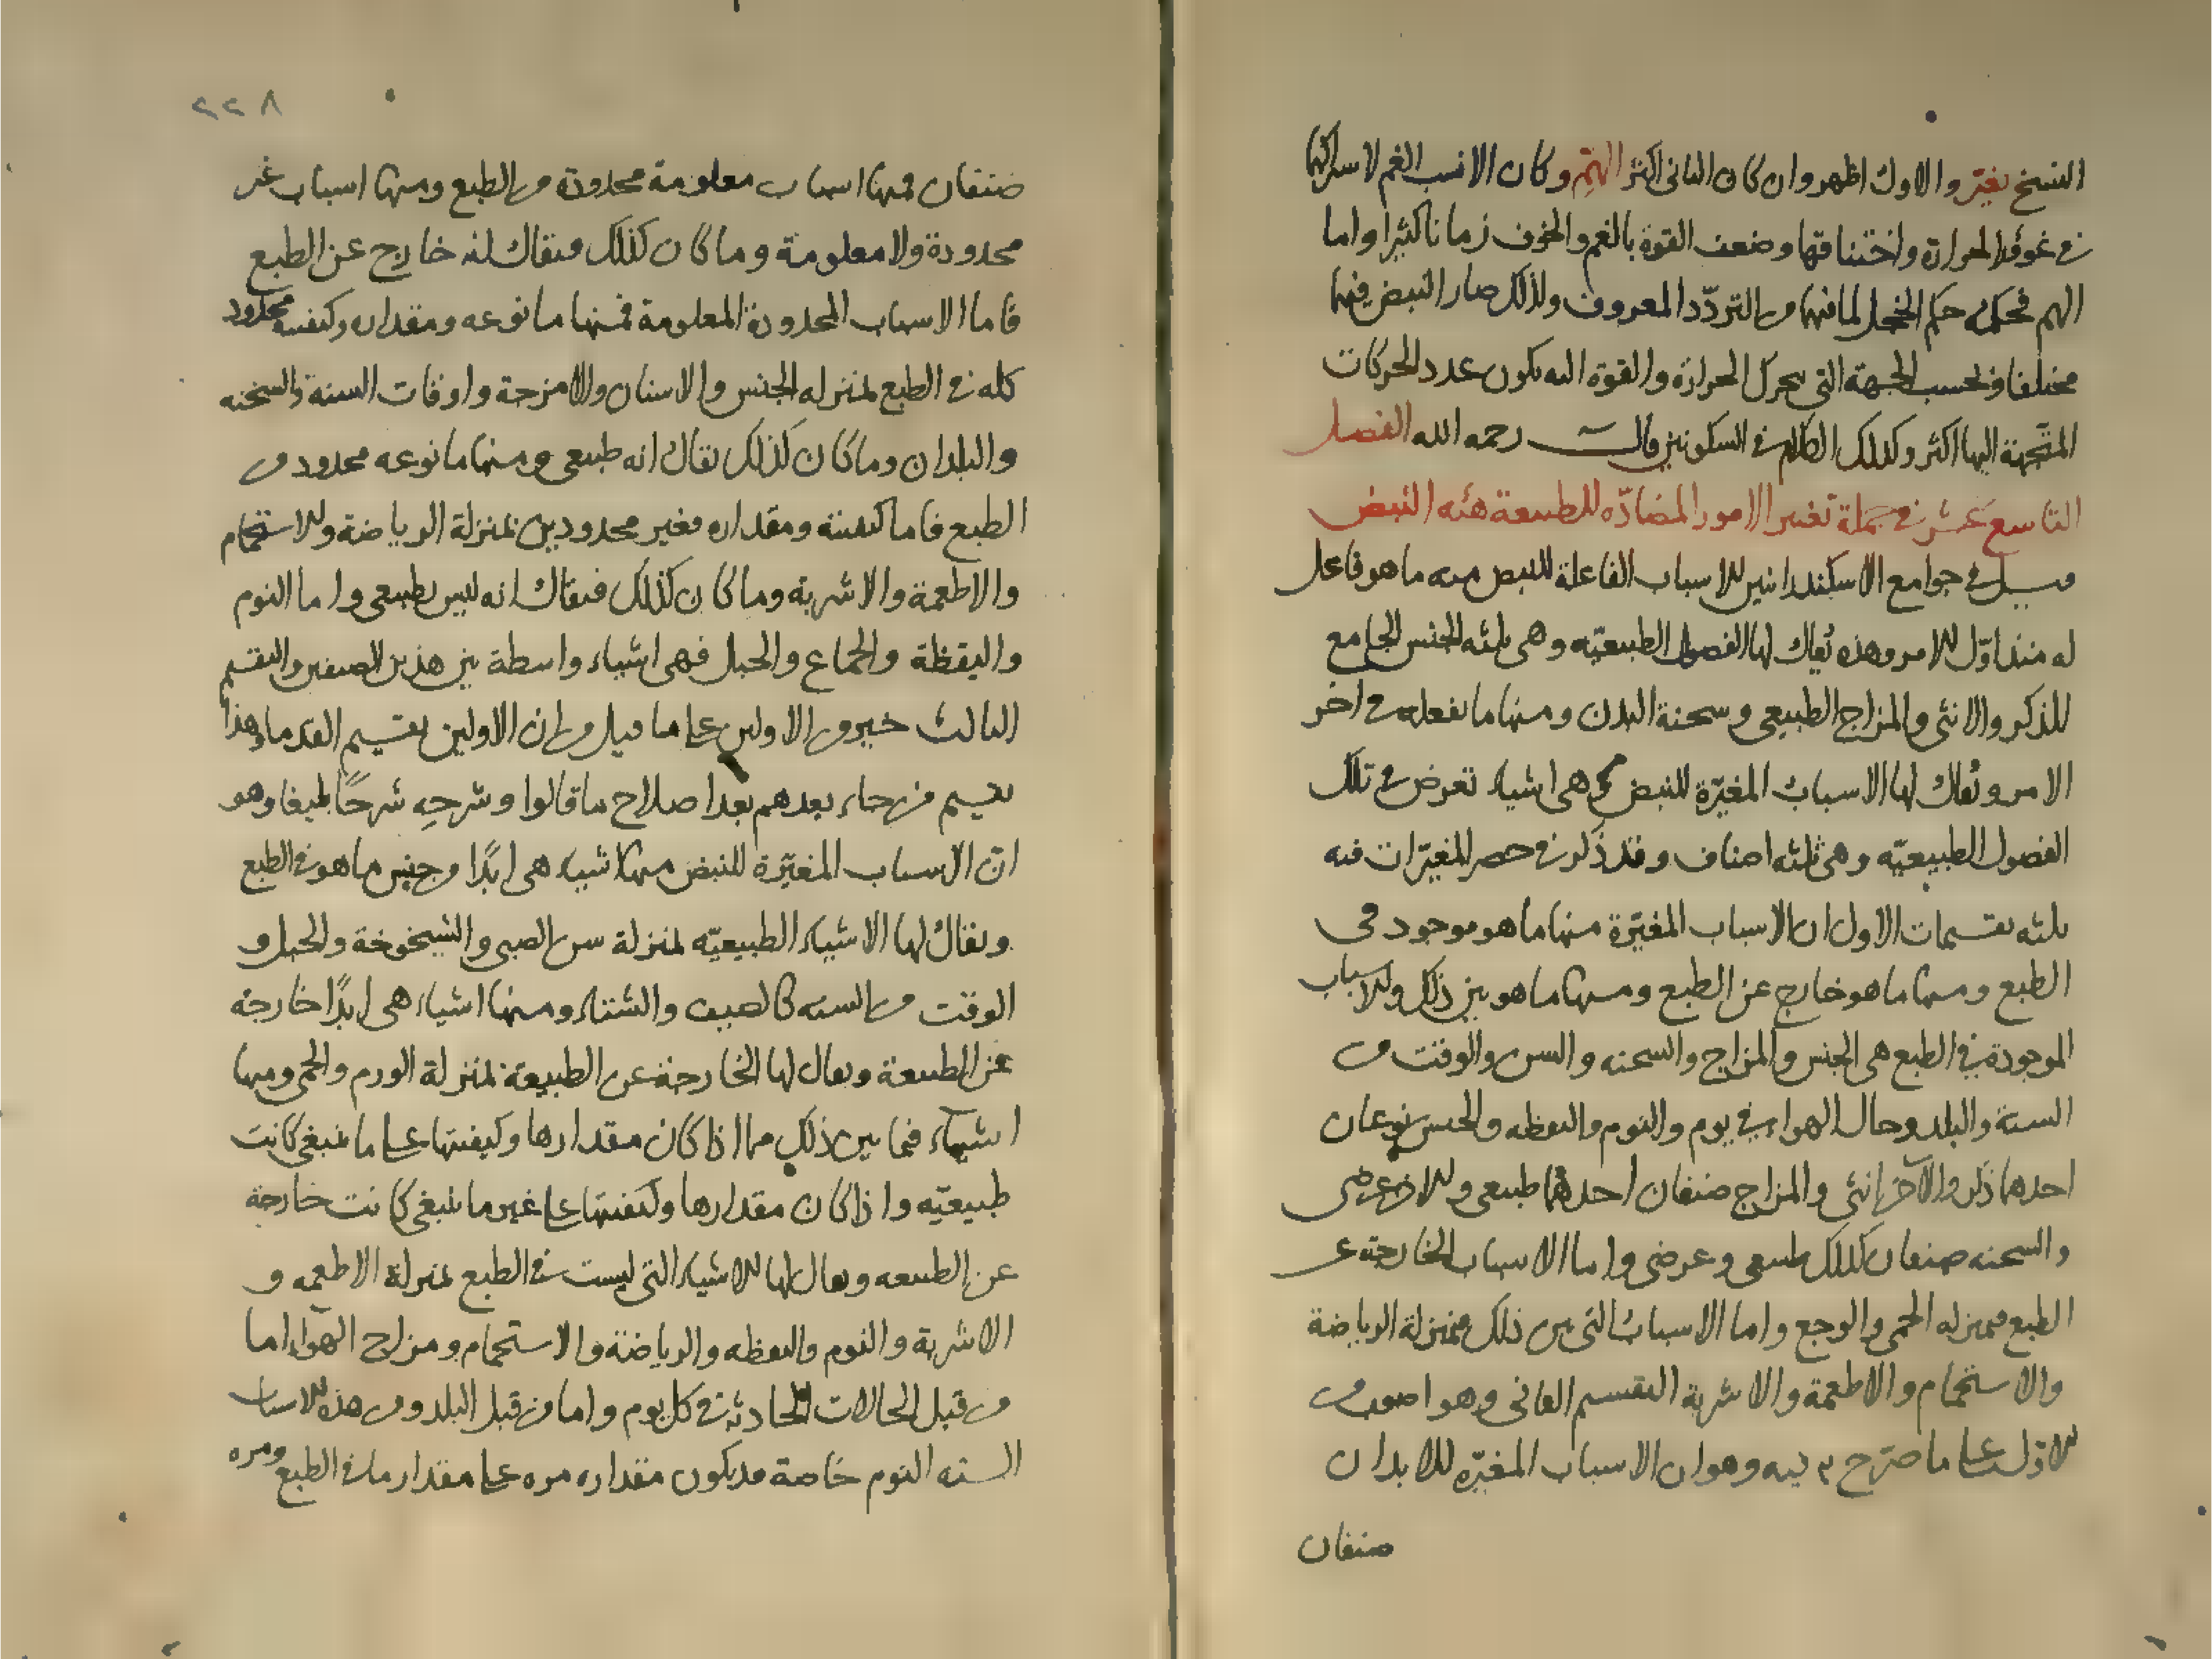 النسخ بغير والاول اظهر وان كان الثانى اكثر الهم وكان الانسب الغم لاشتراكهما
فى غوفة الحرارة واختناقها وضعف القوة بالغم والخوف زمانا كثيرا واما
الهم فحكمه حكم الخجل لما فيها من التردّد المعروف ولذلك صار النبض فيها
مختلفا وبحسب الجهة التى يحرك الحرارة والقوة اليه يكون عدد الحركات
المتجهة اليها اكثر وكذلك الكلام فى السكونين قال رحمه الله الفصل
التاسع عشر فى جملة تغيير الامور المضادّه للطبيعة هئه النبض
قيل فى جوامع الاسكندرانيين الاسباب الفاعلة للنبض منه ما هو فاعل
له منذ اوّل الامر وهذه يُقال لها الفصول الطبيعيّه وهى ثلثه الجنس الجامع
للذكر والانثى والمزاج الطبيعى وسحنة البدن ومنها ما يفعله فى اخر
الامر ويُقال لها الاسباب المغيّرة للنبض وهى اشياء تعرض فى تلك
الفصول الطبيعيّه وهى ثلثه اصناف وقد ذكر فى حصر المغيّرات فيه
ثلثه تقسيمات الاول ان الاسباب المغيّرة منها ما هو موجود فى
الطبع ومنها ما هو خارج عن الطبع ومنها ما هو بين ذلك والاسباب
الموجودة فى الطبع هى الجنس والمزاج والسحنه والسن والوقت من
السنة والبلد وحال الهواء فى يوم والنوم واليقظه والجنس نوعان
احدهما ذكر والآخر انثى والمزاج صنفان احدهما طبيعى والاخر عرضى
والسحنه صنفان كذلك طبيعى وعرضى واما الاسباب الخارجة عن
الطبع فبمنزله الحمى والوجع واما الاسباب التى بين ذلك فبمنزلة الرياضة
والاستحمام والاطعمة والاشربة التقسيم الثانى وهو اصوب من
الاوّل على ما صرّح به فيه وهو ان الاسباب المغيّره للابدان
صنفان
٨٢٢
صنفان فمنها اسباب معلومة محدودة من الطبع ومنها اسباب غير
محدودة ولا معلومة وما كان كذلك فيقال انه خارج عن الطبع
فاما الاسباب المحدودة المعلومة فمنها ما نوعه ومقداره وكيفيته محدود
كله فى الطبع بمنزله الجنس والاسنان والامزجة واوقات السنة والسحنه
والبلدان وما كان كذلك يقال انه طبيعى ومنها ما نوعه محدود من
الطبع فاما كيفيته ومقداره فغير محدودين بمنزلة الرياضة والاستحمام
والاطعمة والاشربه وما كان كذلك فيقال انه ليس بطبيعى واما النوم
واليقظة والجماع والحبل فهى اشياء واسطة بين هذين الصنفين والتقسيم
الثالث خير من الاولين على ما قيل من ان الاولين تقسيم القدماء وهذا
تقسيم من جاء بعدهم بعد اصلاح ما قالوا وشرحِه شرحًا بليغا وهو
انّ الاسباب المغيّرة للنبض منها اشياء هى ابدًا من جنس ما هو فى الطبع
ويقالُ لها الاشياء الطبيعيّه بمنزلة سن الصبى والشيخوخة والحبل و
الوقت من السنه كالصيف والشتاء ومنها اشياء هى ابدًا خارجة
عن الطبيعة ويقال لها الخارجة عن الطبيعة بمنزلة الورم والحمى ومنها
اشياء فيما بين ذلك مما اذا كان مقدارها وكيفيتها على ما ينبغى كانت
طبيعيّه واذا كان مقدارها وكيفيتها على غير ما ينبغى كانت خارجة
عن الطبيعه ويقال لها الاشياء التى ليست فى الطبع بمنزلة الاطعمه و
الاشربة والنوم واليقظه والرياضة والاستحمام ومزاج الهواء اما
من قبل الحالات الحادثة فى كل يوم واما من قبل البلد ومن هذه الاسباب
الستة النوم خاصة قد يكون مقداره مره على مقدار ما فى الطبع ومره